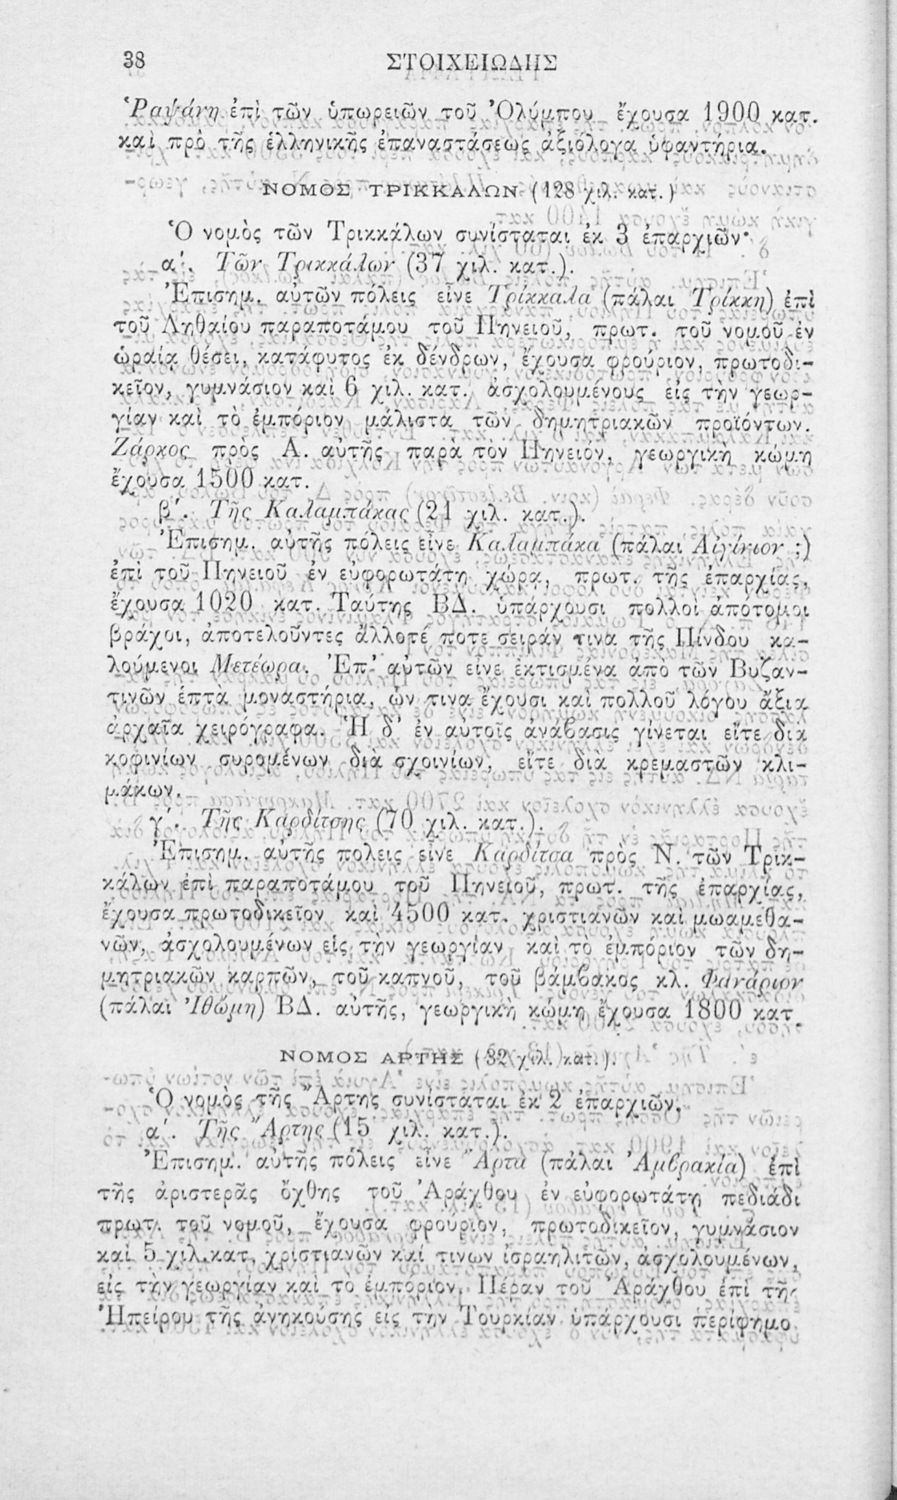 38 ΣΤΟΙΧΕΙΩΔΗΣ
Ῥαψάνη ἐπὶ τῶν ὑπωρειῶν τοῦ Ὀλύμπου ἔχουσα 1900 κατ.
καὶ πρὸ τῆς ἑλληνικῆς ἐπαναστάσεως ἀξιόλογα ὑφαντήρια.
ΝΟΜΟΣ ΤΡΙΚΚΑΛΩΝ (128 χιλ. κατ.)
Ὁ νομὸς τῶν Τρικκάλων συνίσταται ἐκ 3 ἐπαρχιῶν·
α′. Τῶν Τρικκάλων (37 χιλ. κατ.).
Ἐπισημ. αὐτῶν πόλεις εἶνε Τρίκκαλα (πάλαι Τρίκκη) ἐπὶ
τοῦ Ληθαίου παραποτάμου τοῦ Πηνειοῦ, πρωτ. τοῦ νομοῦ ἐν
ὡραίᾳ θέσει, κατάφυτος ἐκ δένδρων, ἔχουσα φρούριον, πρωτοδι-
κεῖον, γυμνάσιον καὶ 6 χιλ. κατ. ἀσχολουμένους εἰς τὴν γεωρ-
γίαν καὶ τὸ ἐμπόριον μάλιστα τῶν δημητριακῶν προϊόντων.
Ζάρκος πρὸς Α. αὐτῆς παρὰ τὸν Πηνειὸν, γεωργικὴ κώμη
ἔχουσα 1500 κατ.
β′. Τῆς Καλαμπάκας (21 χιλ. κατ.).
Ἐπισημ. αὐτῆς πόλεις εἶνε Καλαμπάκα (πάλαι Αἰγίνιον ;)
ἐπὶ τοῦ Πηνειοῦ ἐν εὐφορωτάτῃ χώρᾳ, πρωτ. τῆς ἐπαρχίας,
ἔχουσα 1020 κατ. Ταύτης ΒΔ. ὑπάρχουσι πολλοὶ ἀπότομοι
βράχοι, ἀποτελοῦντες ἄλλοτέ ποτε σειράν τινα τῆς Πίνδου κα-
λούμενοι Μετέωρα. Ἐπ' αὐτῶν εἶνε ἐκτισμένα ἀπὸ τῶν Βυζαν-
τινῶν ἑπτὰ μοναστήρια, ὧν τινα ἔχουσι καὶ πολλοῦ λόγου ἄξια
ἀρχαῖα χειρόγραφα. Ἡ δ' ἐν αὐτοῖς ἀνάβασις γίνεται εἴτε διὰ
κοφινίων συρομένων διὰ σχοινίων, εἴτε διὰ κρεμαστῶν κλι-
μάκων.
γ′. Τῆς Καρδίτσης (70 χιλ. κατ.).
Ἐπισημ. αὐτῆς πόλεις εἶνε Καρδίτσα πρὸς Ν. τῶν Τρικ-
κάλων ἐπὶ παραποτάμου τοῦ Πηνειοῦ, πρωτ. τῆς ἐπαρχίας,
ἔχουσα πρωτοδικεῖον καὶ 4500 κατ. χριστιανῶν καὶ μωαμεθα-
νῶν, ἀσχολουμένων εἰς τὴν γεωργίαν καὶ τὸ ἐμπόριον τῶν δη-
μητριακῶν καρπῶν, τοῦ καπνοῦ, τοῦ βάμβακος κλ. Φανάριον
(πάλαι Ἰθώμη) ΒΔ. αὐτῆς, γεωργικὴ κώμη ἔχουσα 1800 κατ.
ΝΟΜΟΣ ΑΡΤΗΣ (32 χιλ. κατ.).
Ὁ νομὸς τῆς Ἄρτης συνίσταται ἐκ 2 ἐπαρχιῶν.
α′. Τῆς Ἄρτης (15 χιλ. κατ.).
Ἐπισημ. αὐτῆς πόλεις εἶνε Ἄρτα (πάλαι Ἀμβρακία) ἐπὶ
τῆς ἀριστερᾶς ὄχθης τοῦ Ἀράχθου ἐν εὐφορωτάτῃ πεδιάδι
πρωτ. τοῦ νομοῦ, ἔχουσα φρούριον, πρωτοδικεῖον, γυμνάσιον
καὶ 5 χιλ. κατ. χριστιανῶν καί τινων ἰσραηλιτῶν, ἀσχολουμένων
εἰς τὴν γεωργίαν καὶ τὸ ἐμπόριον. Πέραν τοῦ Ἀράχθου ἐπὶ τῆς
Ἠπείρου τῆς ἀνηκούσης εἰς τὴν Τουρκίαν ὑπάρχουσι περίφημο